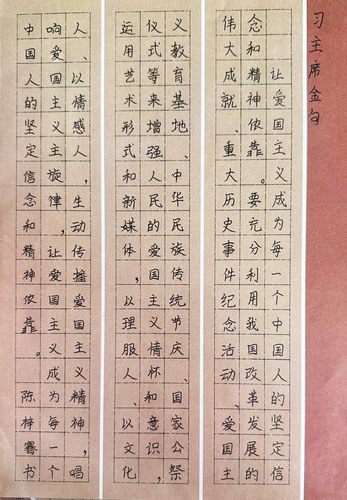 习主席金句
让爱国主义成为每一个中国人的坚定信
念和精神依靠。要充分利用我国改革发展的
伟大成就、重大历史事件纪念活动、爱国主
义教育基地、中华民族传统节庆、国家公祭
仪式等来增强人民的爱国主义情怀和意识，
运用艺术形式和新媒体，以理服人、以文化
人、以情感人，生动传播爱国主义精神，唱
响爱国主义主旋律，让爱国主义成为每一个
中国人的坚定信念和精神依靠。陈梓骞书